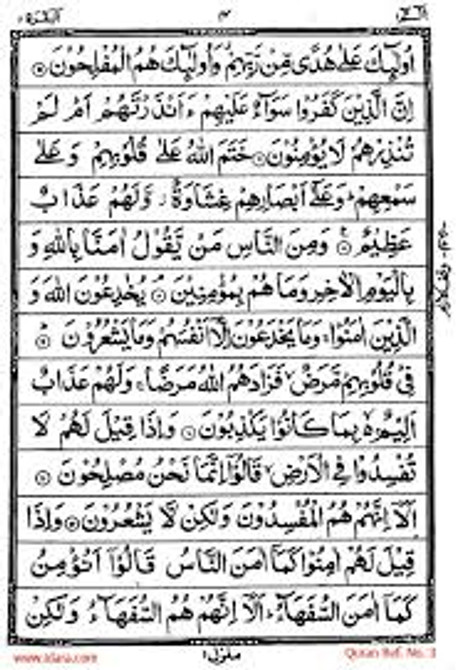 البقرة ٢
٣
الٓمّٓ ١
اُولٰٓئِكَ عَلٰى هُدًى مِّنْ رَّبِّهِمْ وَاُولٰٓئِكَ هُمُ الْمُفْلِحُوْنَ ○
اِنَّ الَّذِيْنَ كَفَرُوْا سَوَآءٌ عَلَيْهِمْ ءَاَنْذَرْتَهُمْ اَمْ لَمْ
تُنْذِرْهُمْ لَا يُؤْمِنُوْنَ ○ خَتَمَ اللّٰهُ عَلٰى قُلُوْبِهِمْ وَ عَلٰى
سَمْعِهِمْ ؕ وَعَلٰٓى اَبْصَارِهِمْ غِشَاوَةٌ ؗ وَّلَهُمْ عَذَابٌ
عَظِيْمٌ ○ وَمِنَ النَّاسِ مَنْ يَّقُوْلُ اٰمَنَّا بِاللّٰهِ وَ
بِالْيَوْمِ الْاٰخِرِ وَمَا هُمْ بِمُؤْمِنِيْنَ ○ يُخٰدِعُوْنَ اللّٰهَ وَ
الَّذِيْنَ اٰمَنُوْا ۚ وَمَا يَخْدَعُوْنَ اِلَّاۤ اَنْفُسَهُمْ وَمَا يَشْعُرُوْنَ ○
فِيْ قُلُوْبِهِمْ مَّرَضٌ ۙ فَزَادَهُمُ اللّٰهُ مَرَضًا ۚ وَلَهُمْ عَذَابٌ
اَلِيْمٌۢ ۙ بِمَا كَانُوْا يَكْذِبُوْنَ ○ وَاِذَا قِيْلَ لَهُمْ لَا
تُفْسِدُوْا فِي الْاَرْضِ ۙ قَالُوْٓا اِنَّمَا نَحْنُ مُصْلِحُوْنَ ○
اَلَآ اِنَّهُمْ هُمُ الْمُفْسِدُوْنَ وَلٰكِنْ لَّا يَشْعُرُوْنَ ○ وَاِذَا
قِيْلَ لَهُمْ اٰمِنُوْا كَمَآ اٰمَنَ النَّاسُ قَالُوْٓا اَنُؤْمِنُ
كَمَآ اٰمَنَ السُّفَهَآءُ ؕ اَلَآ اِنَّهُمْ هُمُ السُّفَهَآءُ وَلٰكِنْ
منزل ١
www.idara.com
Quran Ref. No. 3